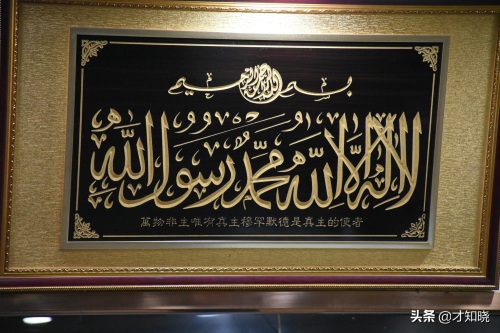 بسم الله الرحمن الرحيم
لا إله إلا الله محمد رسول الله
萬物非主唯有真主穆罕默德是真主的使者
头条 @才知晓